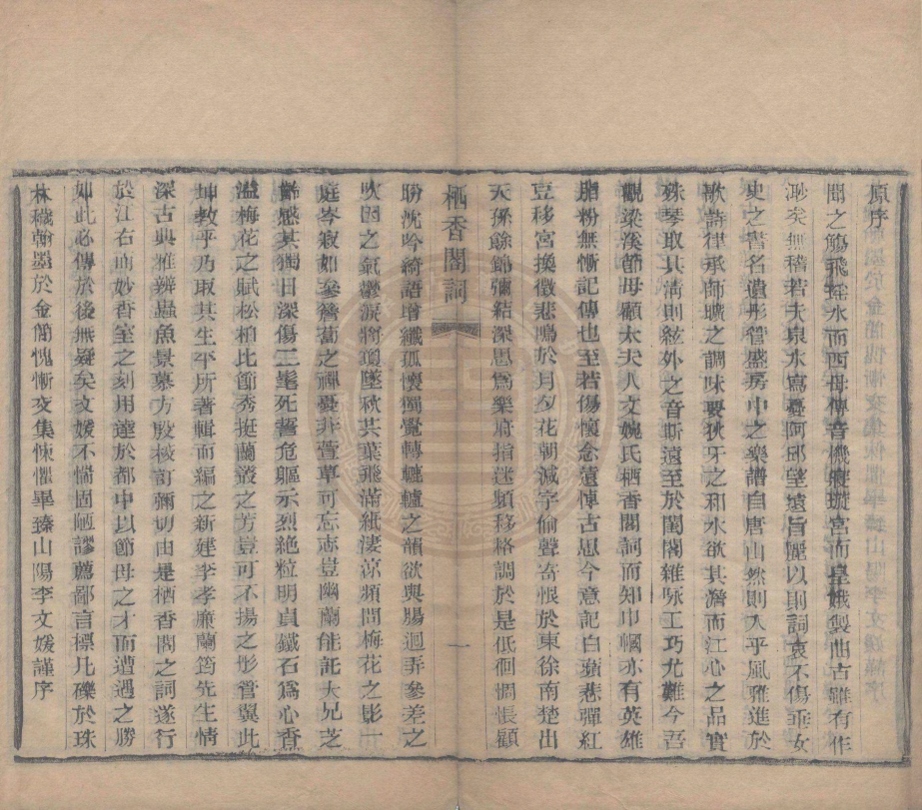 原序
聞之觴飛瑤水而西母傳音機廢璇宮而皇娥製曲古雖有作
渺矣無稽若夫泉水寫憂阿邱望遠旨麗以則詞哀不傷垂女
史之書名遺彤管盛房中之樂譜自唐山然則入乎風雅進於
歌詩律承師曠之調味要狄牙之和水欲其澹而江心之品實
殊琴取其清則絃外之音斯遠至於閨閣雜咏工巧尤難今吾
觀梁溪節母顧太夫人文婉氏栖香閣詞而知巾幗亦有英雄
脂粉無慚記傳也至若傷懷念遠悼古思今意記白蘋悲彈紅
豆移宮換徵悲鳴於月夕花朝減字偷聲寄恨於東徐南楚出
天孫餘錦彌結深思為樂府指迷頻移格調於是低徊惆悵顧
栖香閣詞
一
盼沈吟綺語增纖孤懷獨覺轉轆轤之韻欲與腸迴弄參差之
吹因之氣鬱淚將瓊墜秋共葉飛滿紙淒涼頻問梅花之影一
庭岑寂如參簷蔔之禪疊非萱草可忘志豈幽蘭能託大兄芝
齡盛其獨旧深傷三髦死誓危軀示烈絶粒明貞鐵石為心香
溢梅花之賦松柏比節秀挺蘭叢之芳豈可不揚之彤管翼此
坤教乎乃取其生平所著輯而編之新建李孝廉蘭筠先生情
深古典雅辨蟲魚景慕方殷校訂彌切由是栖香閣之詞遂行
於江右而妙香室之刻用達於都中以節母之才而遭遇之勝
如此必傳於後無疑矣文媛不惴固陋謬薦鄙言標凡礫於珠
林穢翰墨於金簡愧慚交集悚懼畢臻山陽李文媛謹序